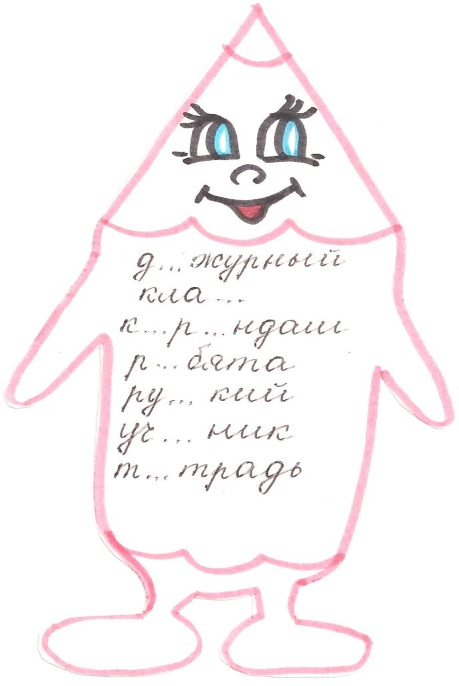 д...журный
кла...
к...р...ндаш
р...бята
ру...кий
уч...ник
т...традь